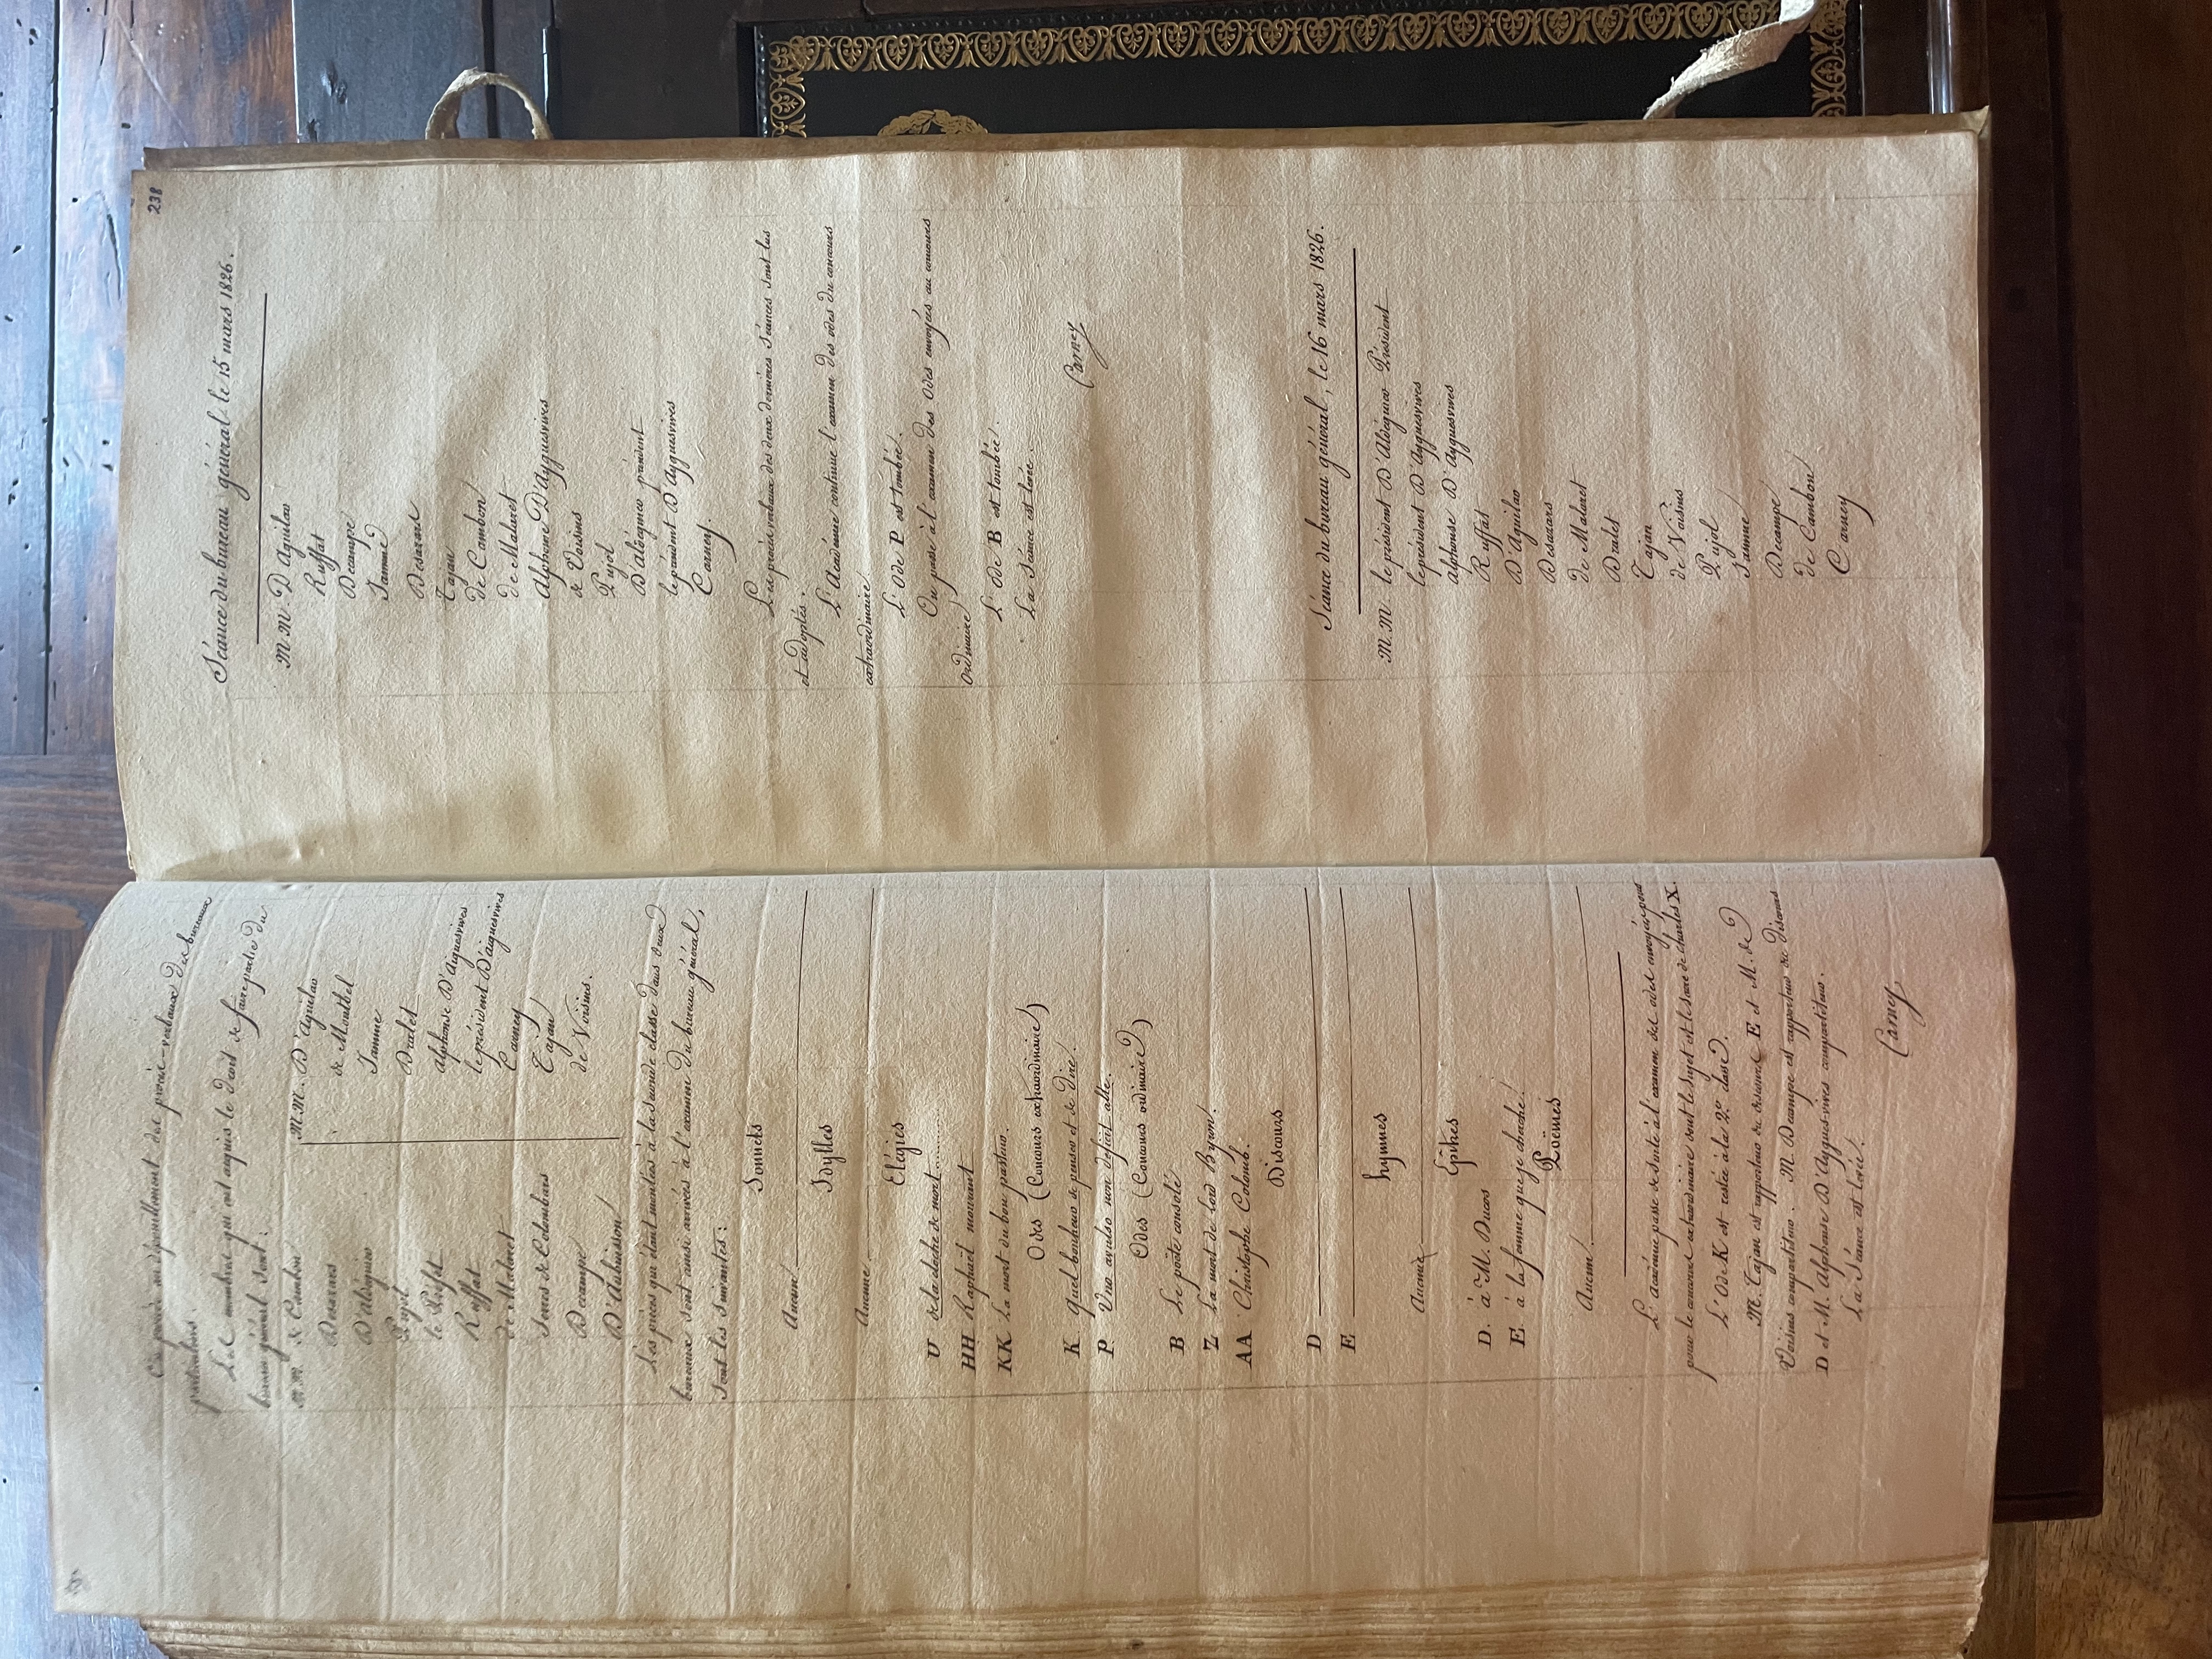 On procède au dépouillement des procès-verbaux des bureaux
particuliers.
Les membres qui ont acquis le droit de faire partie du
bureau général sont :
M.M. de Cambon
Desazars
D'aldéguier
Pujol
le Préfet
Ruffat
de Malaret
Serres de Colombars
Decampe
D'Aubuisson
M.M. D'Aguilar
de Montbel
Jamme
Dralet
alphonse D'Aiguesvives
le président D'aiguesvives
Carney
Tajan
de Voisins.
Les pièces qui étant montées à la seconde classe dans deux
bureaux sont ainsi arrivées à l'examen du bureau général,
sont les suivantes :
Sonnets
Aucun.
Idylles
Aucune.
Elégies
U de la cloche de mort..........
HH Raphaël mourant
KK La mort du bon pasteur.
Odes (Concours extraordinaire)
K Quel bonheur de penser et de dire.
P Uno avulso non deficit alter.
Odes (Concours ordinaire)
B Le poëte consolé
Z La mort de lord Byron.
AA Christophe Colomb.
Discours
D
E
hymnes
Aucune
Epitres
D. à M. Ducos
E. à la femme que je cherche.
Poëmes
Aucun.
L'académie passe de suite à l'examen des odes envoyées pour
pour le concours extraordinaire dont le sujet est le sacre de charles X.
L'Ode K est restée à la 2e. classe.
M. Tajan est rapporteur du discours E et M. de
Voisins compartiteur. M. Decampe est rapporteur du discours
D et M. Alphonse D'Aygues-vives compartiteur.
La Séance est levée.
Carney
238
Séance du bureau général, le 15 mars 1826.
M.M. D'Aguilar
Ruffat
Decampe
Jamme
Desazars
Tajan
de Cambon
de Malaret
Alphonse D'Ayguesvives
de Voisins
Pujol
D'aldéguier président
le président D'Ayguesvives
Carney.
Les procès verbaux des deux dernières séances sont lus
et adoptés.
L'Académie continue l'examen des odes du concours
extraordinaire
L'Ode P est tombée.
On passe à l'examen des Odes envoyées au concours
Ordinaire
L'Ode B est tombée.
La Séance est levée.
Carney
Séance du bureau général, le 16 mars 1826.
M.M. le président D'Aldéguier Président
le président D'Ayguesvives
alphonse D'Ayguesvives
Ruffat
D'Aguilar
Desazars
de Malaret
Dralet
Tajan
de Voisins
Pujol
Jamme
Decampe
de Cambon
Carney